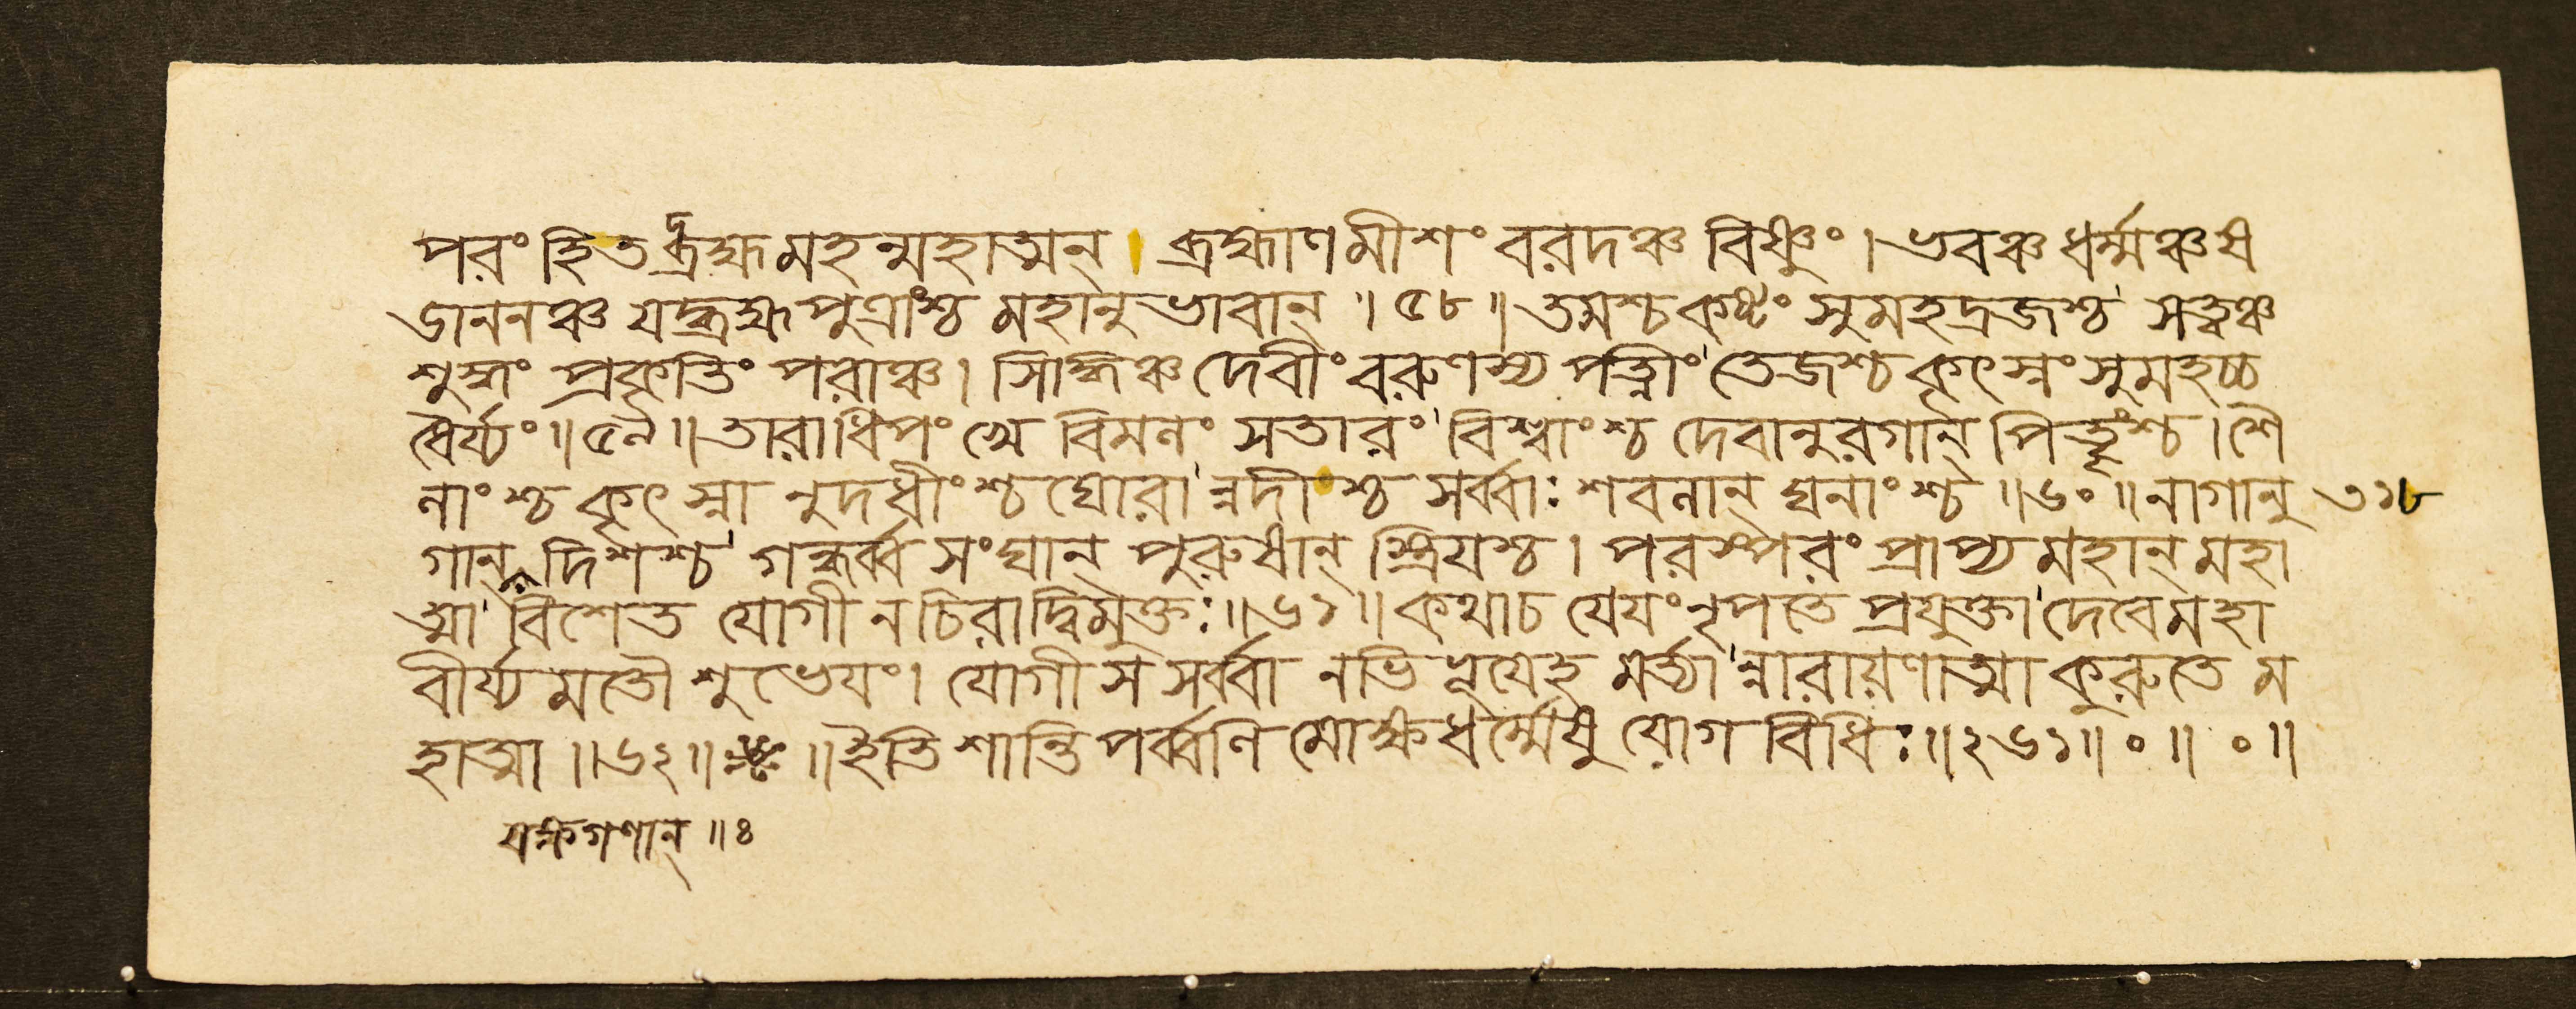 পরং হি তদ্ব্রহ্ম মহন্মহাত্মন্ । ব্রহ্মাণমীশং বরদঞ্চ বিষ্ণুং । ভবঞ্চ ধর্ম্মঞ্চ ষ
ডাননঞ্চ যদ্ব্রহ্মপুত্রাংশ্চ মহানুভাবান্ ॥ ৫৮ ॥ তমশ্চ কষ্টং সুমহদ্রজশ্চ সত্ত্বঞ্চ
শুদ্ধং প্রকৃতিং পরাঞ্চ । সিদ্ধিঞ্চ দেবীং বরুণস্য পত্নীং তেজশ্চ কৃৎস্নং সুমহচ্চ
ধৈর্য্যং ॥ ৫৯ ॥ তারাধিপং খে বিমলং সতারং বিশ্বাংশ্চ দেবানুরগান্ পিতৄংশ্চ । শৈ
লাংশ্চ কৃৎস্নানুদধীংশ্চ ঘোরান্নদীংশ্চ সর্ব্বাঃ শবলান্ ঘনাংশ্চ ॥ ৬০ ॥ নাগান্ন ৩১৮
গান্ দিশশ্চ গন্ধর্ব্বসংঘান্ পুরুষান্ স্ত্রিযশ্চ । পরস্পরং প্রাপ্য মহান্ মহা
ত্মা বিশেত যোগী নচিরাদ্বিমুক্তঃ ॥ ৬১ ॥ কথা চ যেযং নৃপতে প্রযুক্তা দেবে মহা
বীর্য্যমতৌ শুভেযং । যোগী স সর্ব্বানভিভূযেহ মর্ত্ত্যান্নারায়ণাত্মা কুরুতে ম
হাত্মা ॥ ৬২ ॥ ॥ ইতি শান্তিপর্ব্বণি মোক্ষধর্ম্মেষু যোগবিধিঃ ॥ ২৬১ ॥ ० ॥ ० ॥
যক্ষগণান্ ॥ ঃ